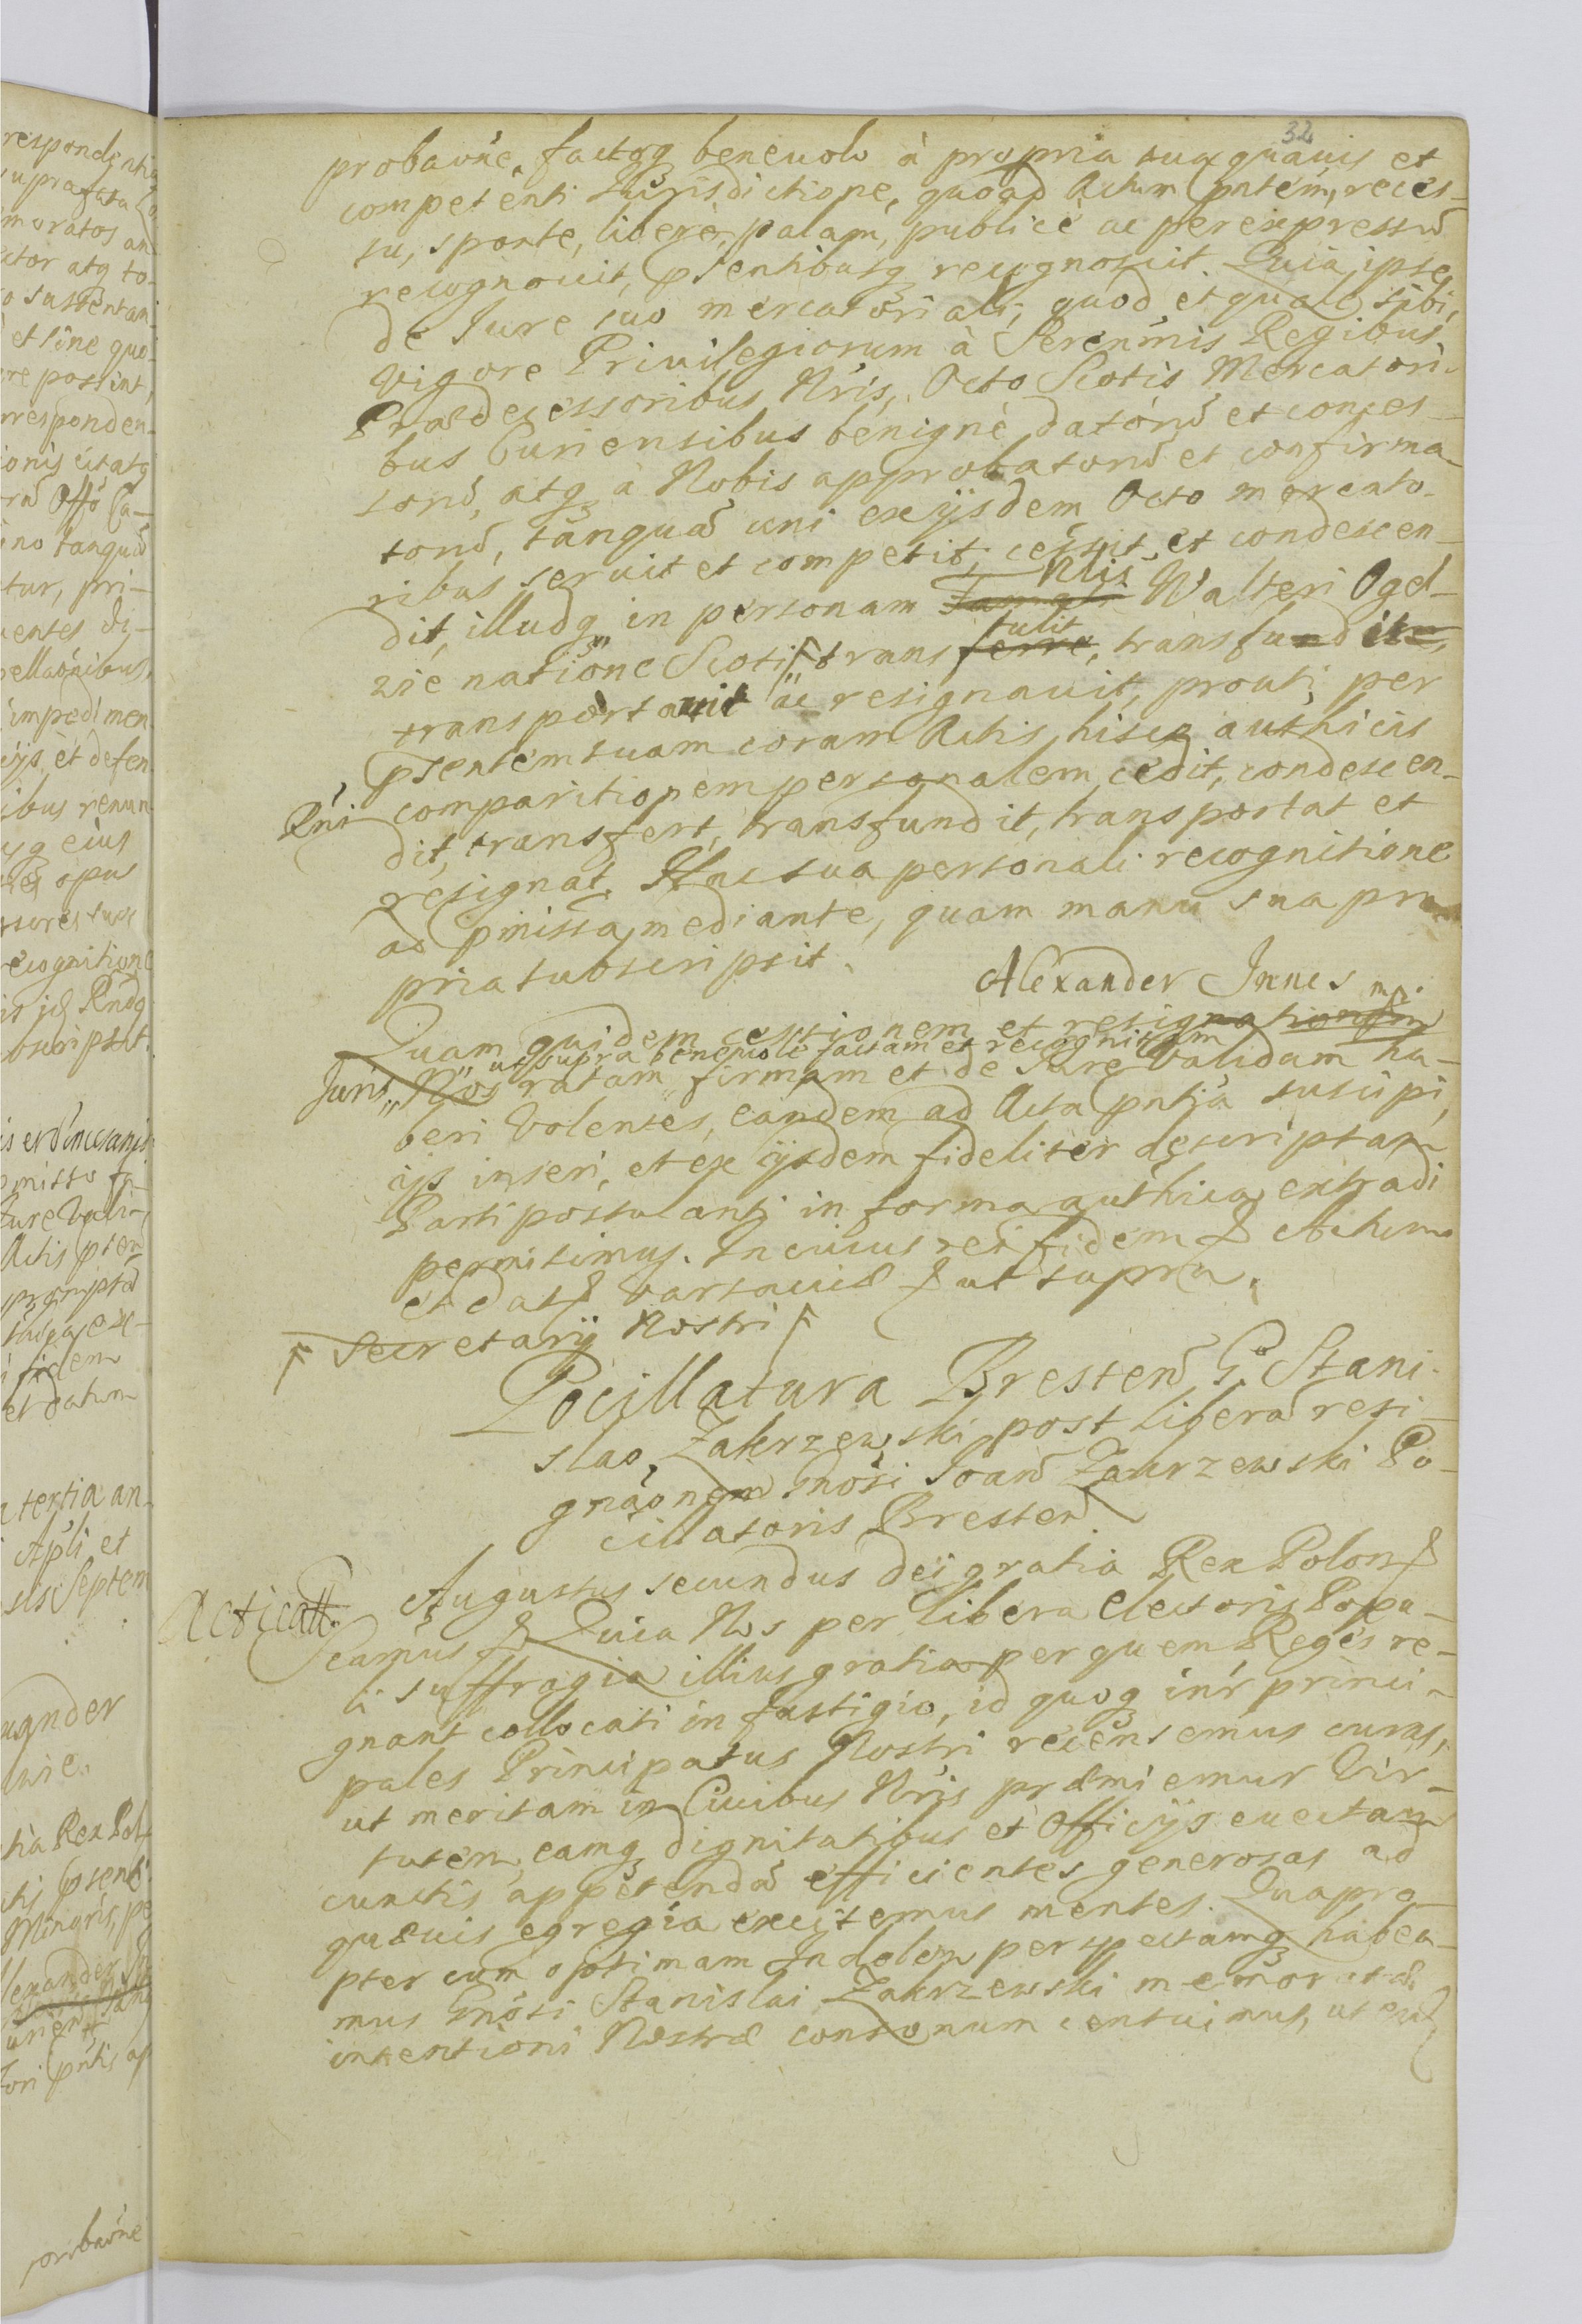 32
probaōne, factoq; beneuolo à propria sua quauis et
competenti Jurisdictione, quoad Actum pntem, reces-
su, sponte, libere, palam, publice ac per expressū
recognouit, psentibusq; recognoscit. Quia ipse
de Jure suo mercatoriali, quod et quale sibi,
vigore Priuilegiorum à Serenmis Regibus
Prædecessoribus Nris, Octo Scotis Mercatori-
bus Curiensibus benignè datorū et conces-
sorū, atq; à Nobis approbatorū et confirma-
torū, tanquā uni ex ijsdem Octo mercato-
ribus seruit et competit, cessit et condescen-
dit, illudq; in personam Nlis Walteri Ogel-
wie natione Scoti transtulit, transfundit,
transportauit ac resignauit, prouti per
psentem suam coram Actis hisce authicis
Rni comparitionem personalem, cedit, condescen-
dit, transfert, transfundit, transportat et
resignat. Hac sua personali recognitione
ad pmissa mediante, quam manu sua pro-
pria subscripsit.
Alexander Innes mp.
Quam quidem cessionem et resignationem
ut supra beneuole factam et recognitam
Juris Nos ratam firmam et de Jure validam ha-
beri volentes, eandem ad Acta pntia suscipi,
ijs inseri, et ex ijsdem fideliter descriptam
Parti postulanti in forma authica extradi
permisimus. In cuius rei fidem & Actum
et dat Varsauiæ & ut supra.
Secretarij Nostri
Pocillatura Bresten G. Stani-
slao Zakrzewski post liberā resi-
gnāonem Gnosi Joan Zakrzewski Po-
cillatoris Bresten
Augustus secundus Dei gratia Rex Polon &
Acticatt.
Quia Nos per libera electoris Popu-
li suffragia illius gratia per quem Reges re-
gnant collocati in fastigio, id quoq; inr princi-
pales Principatus Nostri recensemus curas,
ut meritam in Ciuibus Nris præmiemur Vir-
tutem, eamq; dignitatibus et Officijs euectam
cunctis appetendā efficientes generosas ad
quæuis egregia excitemus mentes. Quapro-
pter cum optimam Indolem perspectamq; habea-
mus Gnosi Stanislai Zakrzewski memoratæ
intentioni Nostræ consonum censuimus, ut